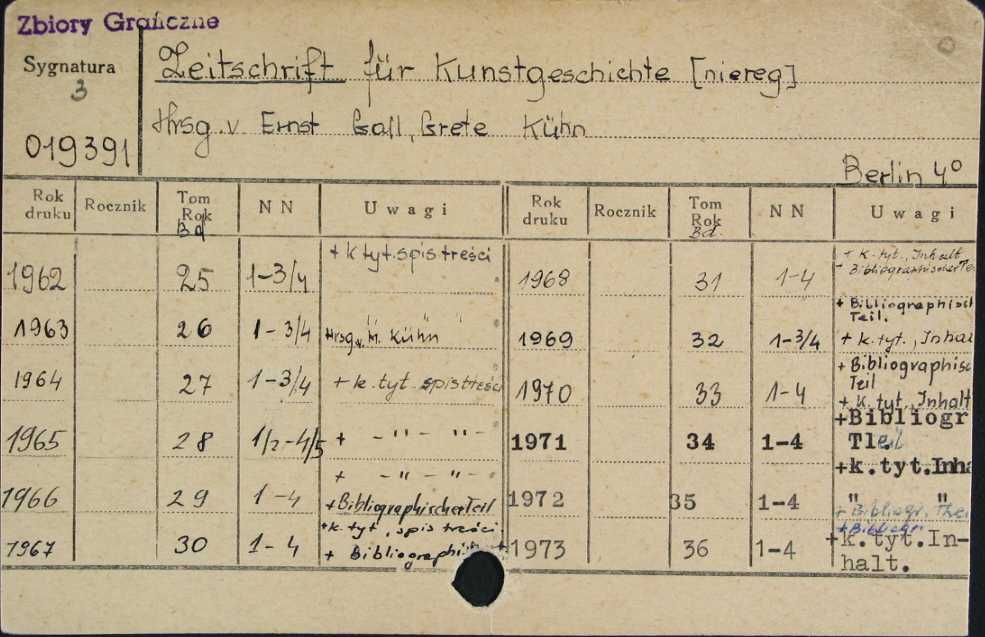 Zbiory Graficzne
Sygnatura
3
019391
Zeitschrift für Kunstgeschichte [niereg]
Hrsg. v Ernst Gall, Grete Kühn
Berlin 4°
Rok druku Rocznik Tom Rok Bd NN Uwagi
1962 25 1-3/4 + k tyt. spis treści
1963 26 1-3/4 " " "
Hrsg. v. M. Kühn
1964 27 1-3/4 + k. tyt. spis treści
1965 28 1/2-4/5 + - " - " -
1966 29 1-4 + - " - " -
+ Bibliographischer Teil
1967 30 1-4 + k. tyt, spis treści
+ Bibliographisch
Rok druku Rocznik Tom Rok Bd. NN Uwagi
1968 31 1-4 + k. tyt., Inhalt
- Bibliographischer Tei
1969 32 1-3/4 + Bibliographisch
Teil.
+ k. tyt., Inha
1970 33 1-4 + Bibliographisc
Teil
+ k. tyt., Inhalt
1971 34 1-4 +Bibliogr
Tleil
+k.tyt.Inha
1972 35 1-4 " "
+ Bibliogr. Thei
1973 36 1-4 + Bibliogr
+k.tyt.In-
halt.